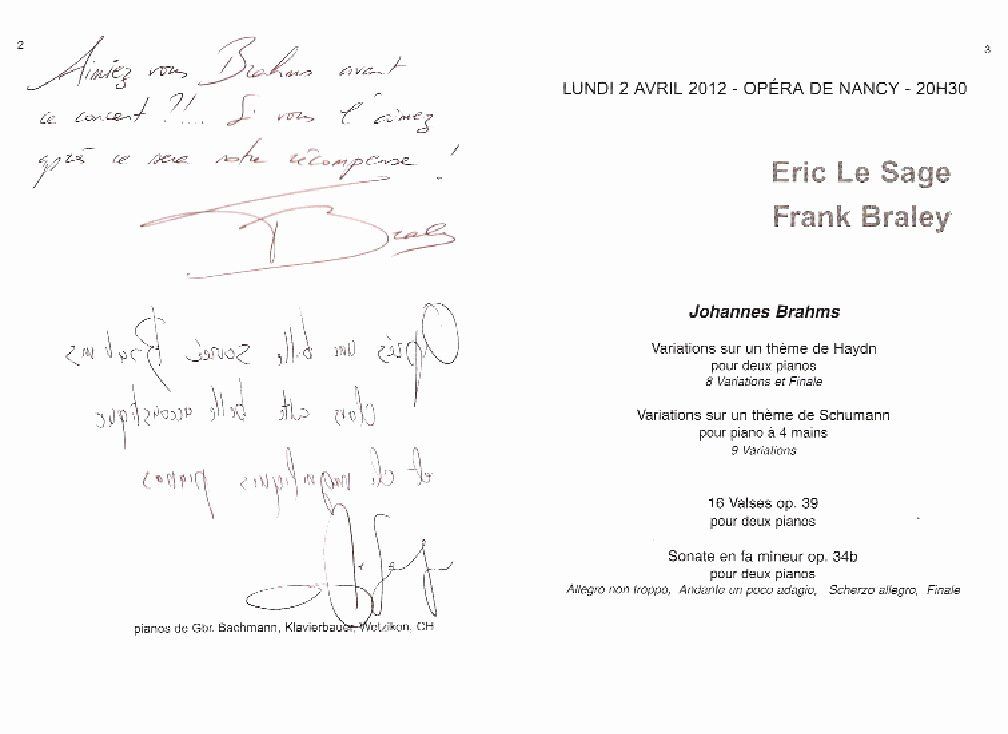 2
Aimiez vous Brahms avant
ce concert ?!... Si vous l'aimez
après ce sera notre récompense !
F Braley
Après une belle soirée Brahms
dans cette belle accoustique
et de magnifiques pianos
pianos de Gbr. Bachmann, Klavierbauer, Wetzikon, CH
3
LUNDI 2 AVRIL 2012 - OPÉRA DE NANCY - 20H30
Eric Le Sage
Frank Braley
Johannes Brahms
Variations sur un thème de Haydn
pour deux pianos
8 Variations et Finale
Variations sur un thème de Schumann
pour piano à 4 mains
9 Variations
16 Valses op. 39
pour deux pianos
Sonate en fa mineur op. 34b
pour deux pianos
Allegro non troppo, Andante un poco adagio, Scherzo allegro, Finale